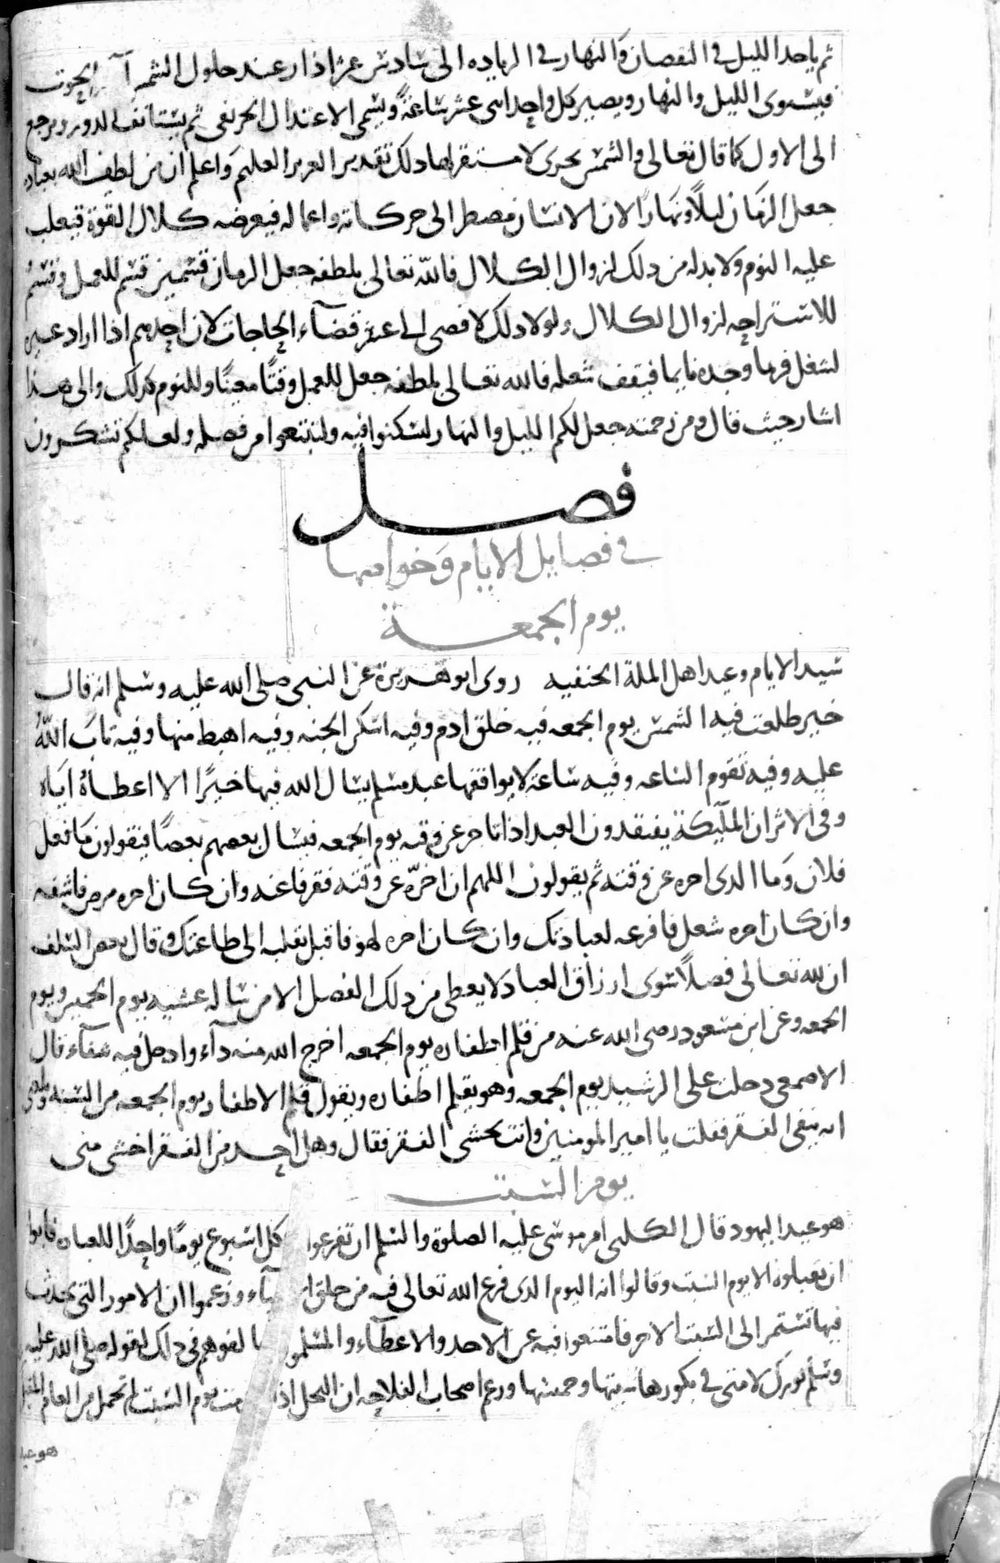 ثم ياخد الليل في النقصان والنهار في الزياده الى سادس عشر اذار عند حلول الشمس الحوت
فيستوى الليل والنهار ويصير كل واحد اثنى عشر ساعة ويسمى الاعتدال الخريفى ثم يستانف الدور ويرجع
الى الاول كما قال تعالى والشمس تجرى لمستقر لها ذلك تقدير العزيز العليم واعلم ان من لطف الله بعباده
جعل الزمان ليلاً ونهاراً لان الانسان مضطر الى حركاته واعماله فيعرضه كلال القوة فيغلب
عليه النوم ولا بد له من ذلك لزوال الكلال فالله تعالى بلطفه جعل الزمان قسمين قسم للعمل وقسم
للاستراحه لزوال الكلال ولولا ذلك لافضى الى عسر قضاء الحاجات لان احدهم اذا اراد غيره
لشغل فربما وجده نايما فيقف شغله فالله تعالى بلطفه جعل للعمل وقتًا معينًا وللنوم كذلك والى هذا
اشار حيث قال ومن رحمته جعل لكم الليل والنهار لتسكنوا فيه ولتبتغوا من فضله ولعلكم تشكرون
فصل
في فضايل الايام وخواصها
يوم الجمعة
سيد الايام وعيد اهل الملة الحنفيه روى ابو هريرة عن النبى صلى الله عليه وسلم انه قال
خير طلعت فيه الشمس يوم الجمعه فيه خلق ادم وفيه اسكن الجنه وفيه اهبط منها وفيه تاب الله
عليه وفيه تقوم الساعه وفيه ساعة لا يوافقها عبد مسلم يسال الله فيها خيرًا الا اعطاه اياه
وفى الاثر ان الملآيكة يفتقدون العبد اذا تاخر عن وقته يوم الجمعه فيسال بعضهم بعضًا فيقولون ما فعل
فلان وما الذى اخره عن وقته ثم يقولون اللهم ان اخرّه عن وقته فقر فاغنه وان كان اخره مرض فاشفه
وان كان اخره شغل فافرغه لعبادتك وان كان اخره لهو فاقبل بقلبه الى طاعتك وقال بعض السلف
ان لله تعالى فضلاً سوى ارزاق العباد لا يعطى من ذلك الفضل الا من ساله عشيه يوم الخميس ويوم
الجمعه وعن ابن مسعود رضى الله عنه من قلم اظفاره يوم الجمعه اخرج الله منه دآء وادخل فيه شفآء قال
الاصمعى دخلت على الرشيد يوم الجمعه وهو يقلم اظفاره ويقول قلم الاظفار يوم الجمعه من السنه وبلغنى
انه ينفى الفقر فقلت يا امير المومنين وانت تخشى الفقر فقال وهل احد من الفقر اخشى منى
يوم السبت
هو عيد اليهود قال الكلبى امر موسى عليه الصلوة والسلم ان تفرغوا كل اسبوع يومًا واحدًا للعباده فابوا
ان يقبلوه الا يوم السبت وقالوا انه اليوم الذى فرغ الله تعالى فيه من خلق وزعموا ان الامور التى تحدث
فيها تستمر الى السبت الاخر فامتنعوا فيه عن الاخذ والاعطآء والمسلمون لفوهم فى ذلك لقوله صلى الله عليه
وسلم بورك لامتى في بكورها سبتها وخميسها وزعم اصحاب الفلاحه ان النخل اذا يوم السبت لم تحمل من العام المقبل
هو عيد